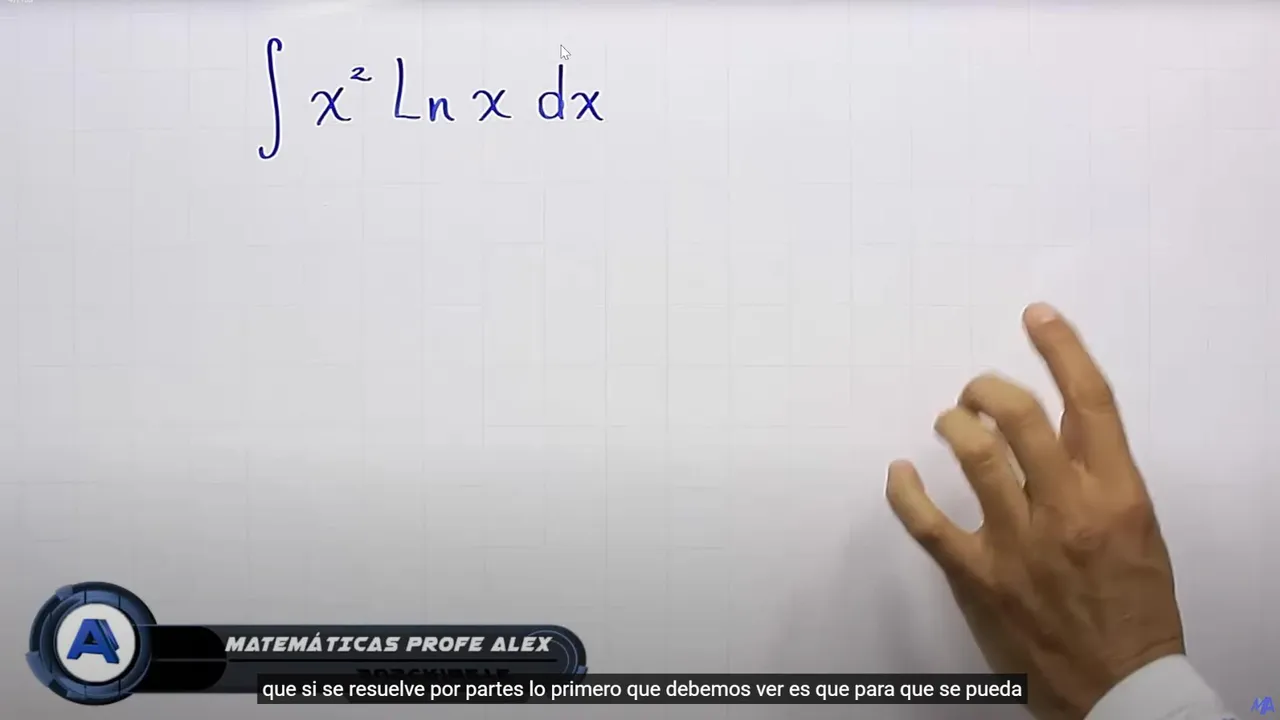 ∫ x² Ln x dx
MATEMÁTICAS PROFE ALEX
que si se resuelve por partes lo primero que debemos ver es que para que se pueda